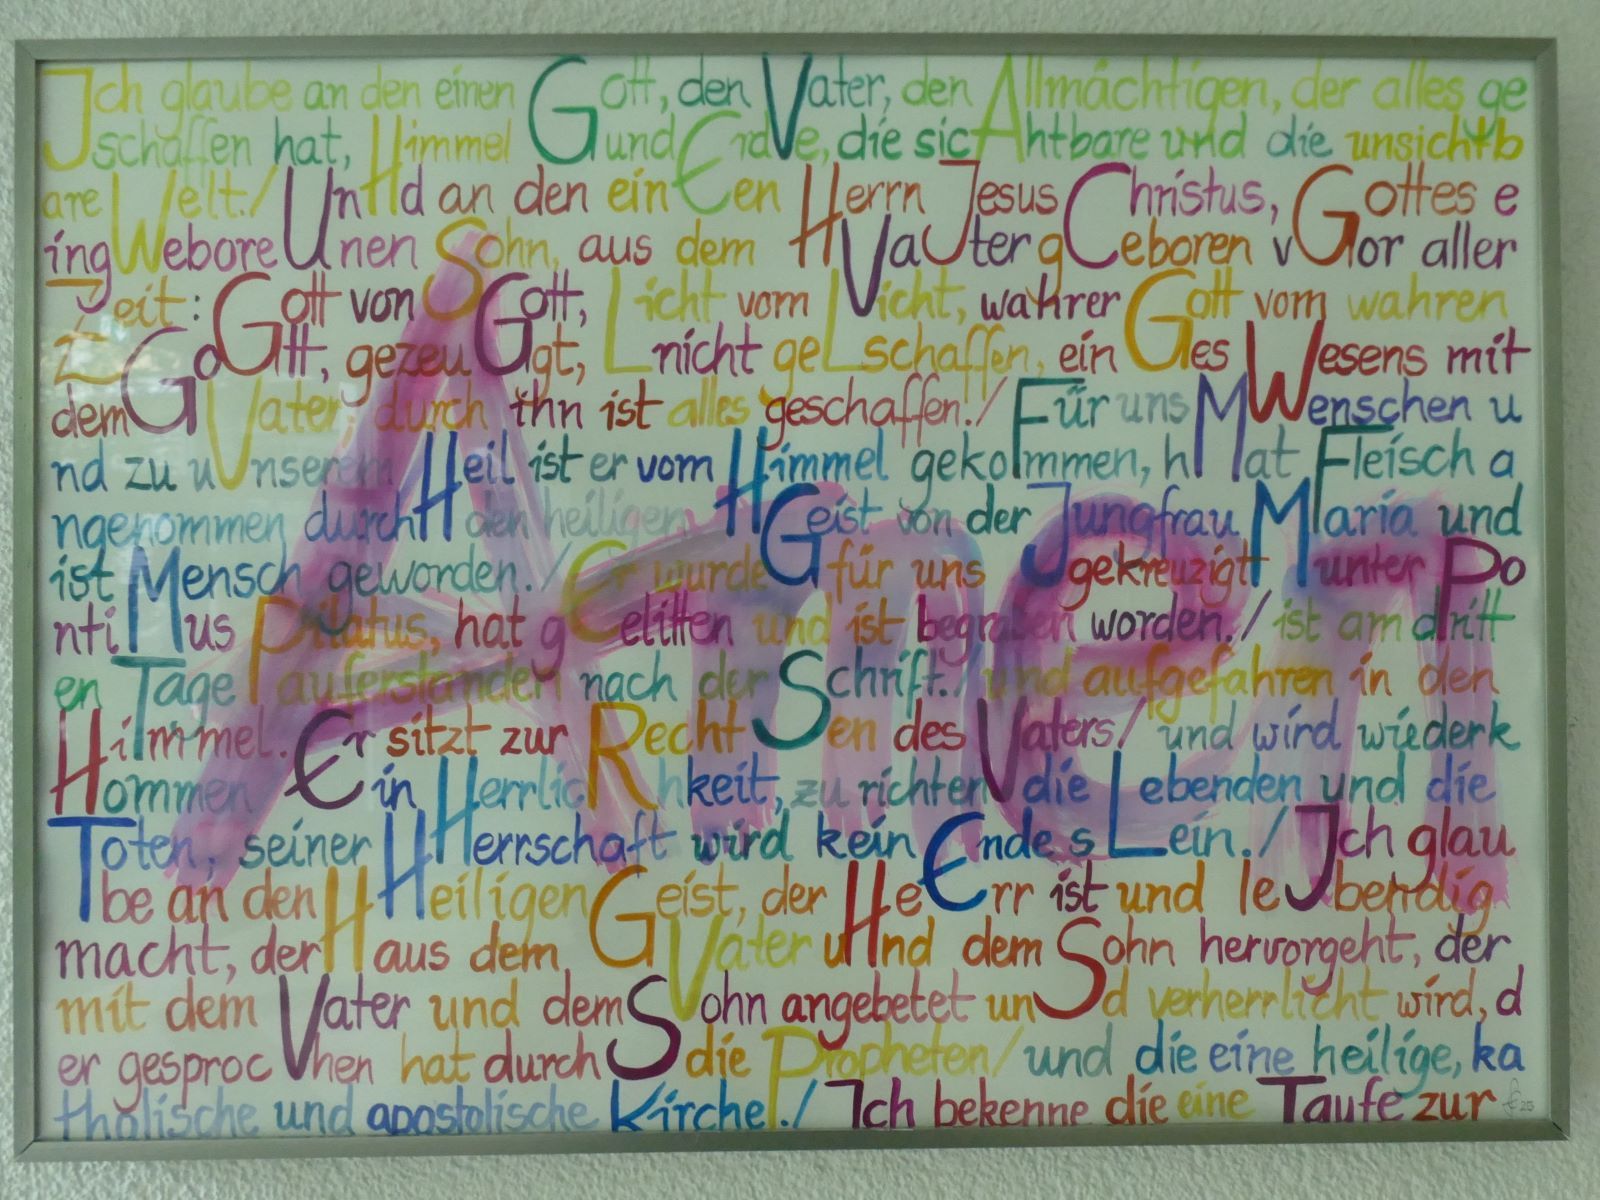 Ich glaube an den einen Gott, den Vater, den Allmächtigen, der alles ge
schaffen hat, Himmel und Erde, die sichtbare und die unsichtb
are Welt./ Und an den einen Herrn Jesus Christus, Gottes e
ingeborenen Sohn, aus dem Vater geboren vor aller
Zeit: Gott von Gott, Licht vom Licht, wahrer Gott vom wahren
Gott, gezeugt, nicht geschaffen, ein Ges Wesens mit
dem Vater, durch ihn ist alles geschaffen./ Für uns Menschen u
nd zu unserem Heil ist er vom Himmel gekommen, hat Fleisch a
ngenommen durch den heiligen Geist von der Jungfrau Maria und
ist Mensch geworden./ Er wurde für uns gekreuzigt unter Po
ntius Pilatus, hat gelitten und ist begraben worden./ ist am dritt
en Tage auferstanden nach der Schrift./ und aufgefahren in den
Himmel. Er sitzt zur Rechten des Vaters/ und wird wiederk
ommen in Herrlichkeit, zu richten die Lebenden und die
Toten, seiner Herrschaft wird kein Ende sein./ Ich glau
be an den Heiligen Geist, der Herr ist und lebendig
macht, der aus dem Vater und dem Sohn hervorgeht, der
mit dem Vater und dem Sohn angebetet und verherrlicht wird, d
er gesprochen hat durch die Propheten/ und die eine heilige, ka
tholische und apostolische Kirche./ Ich bekenne die eine Taufe zur
Amen